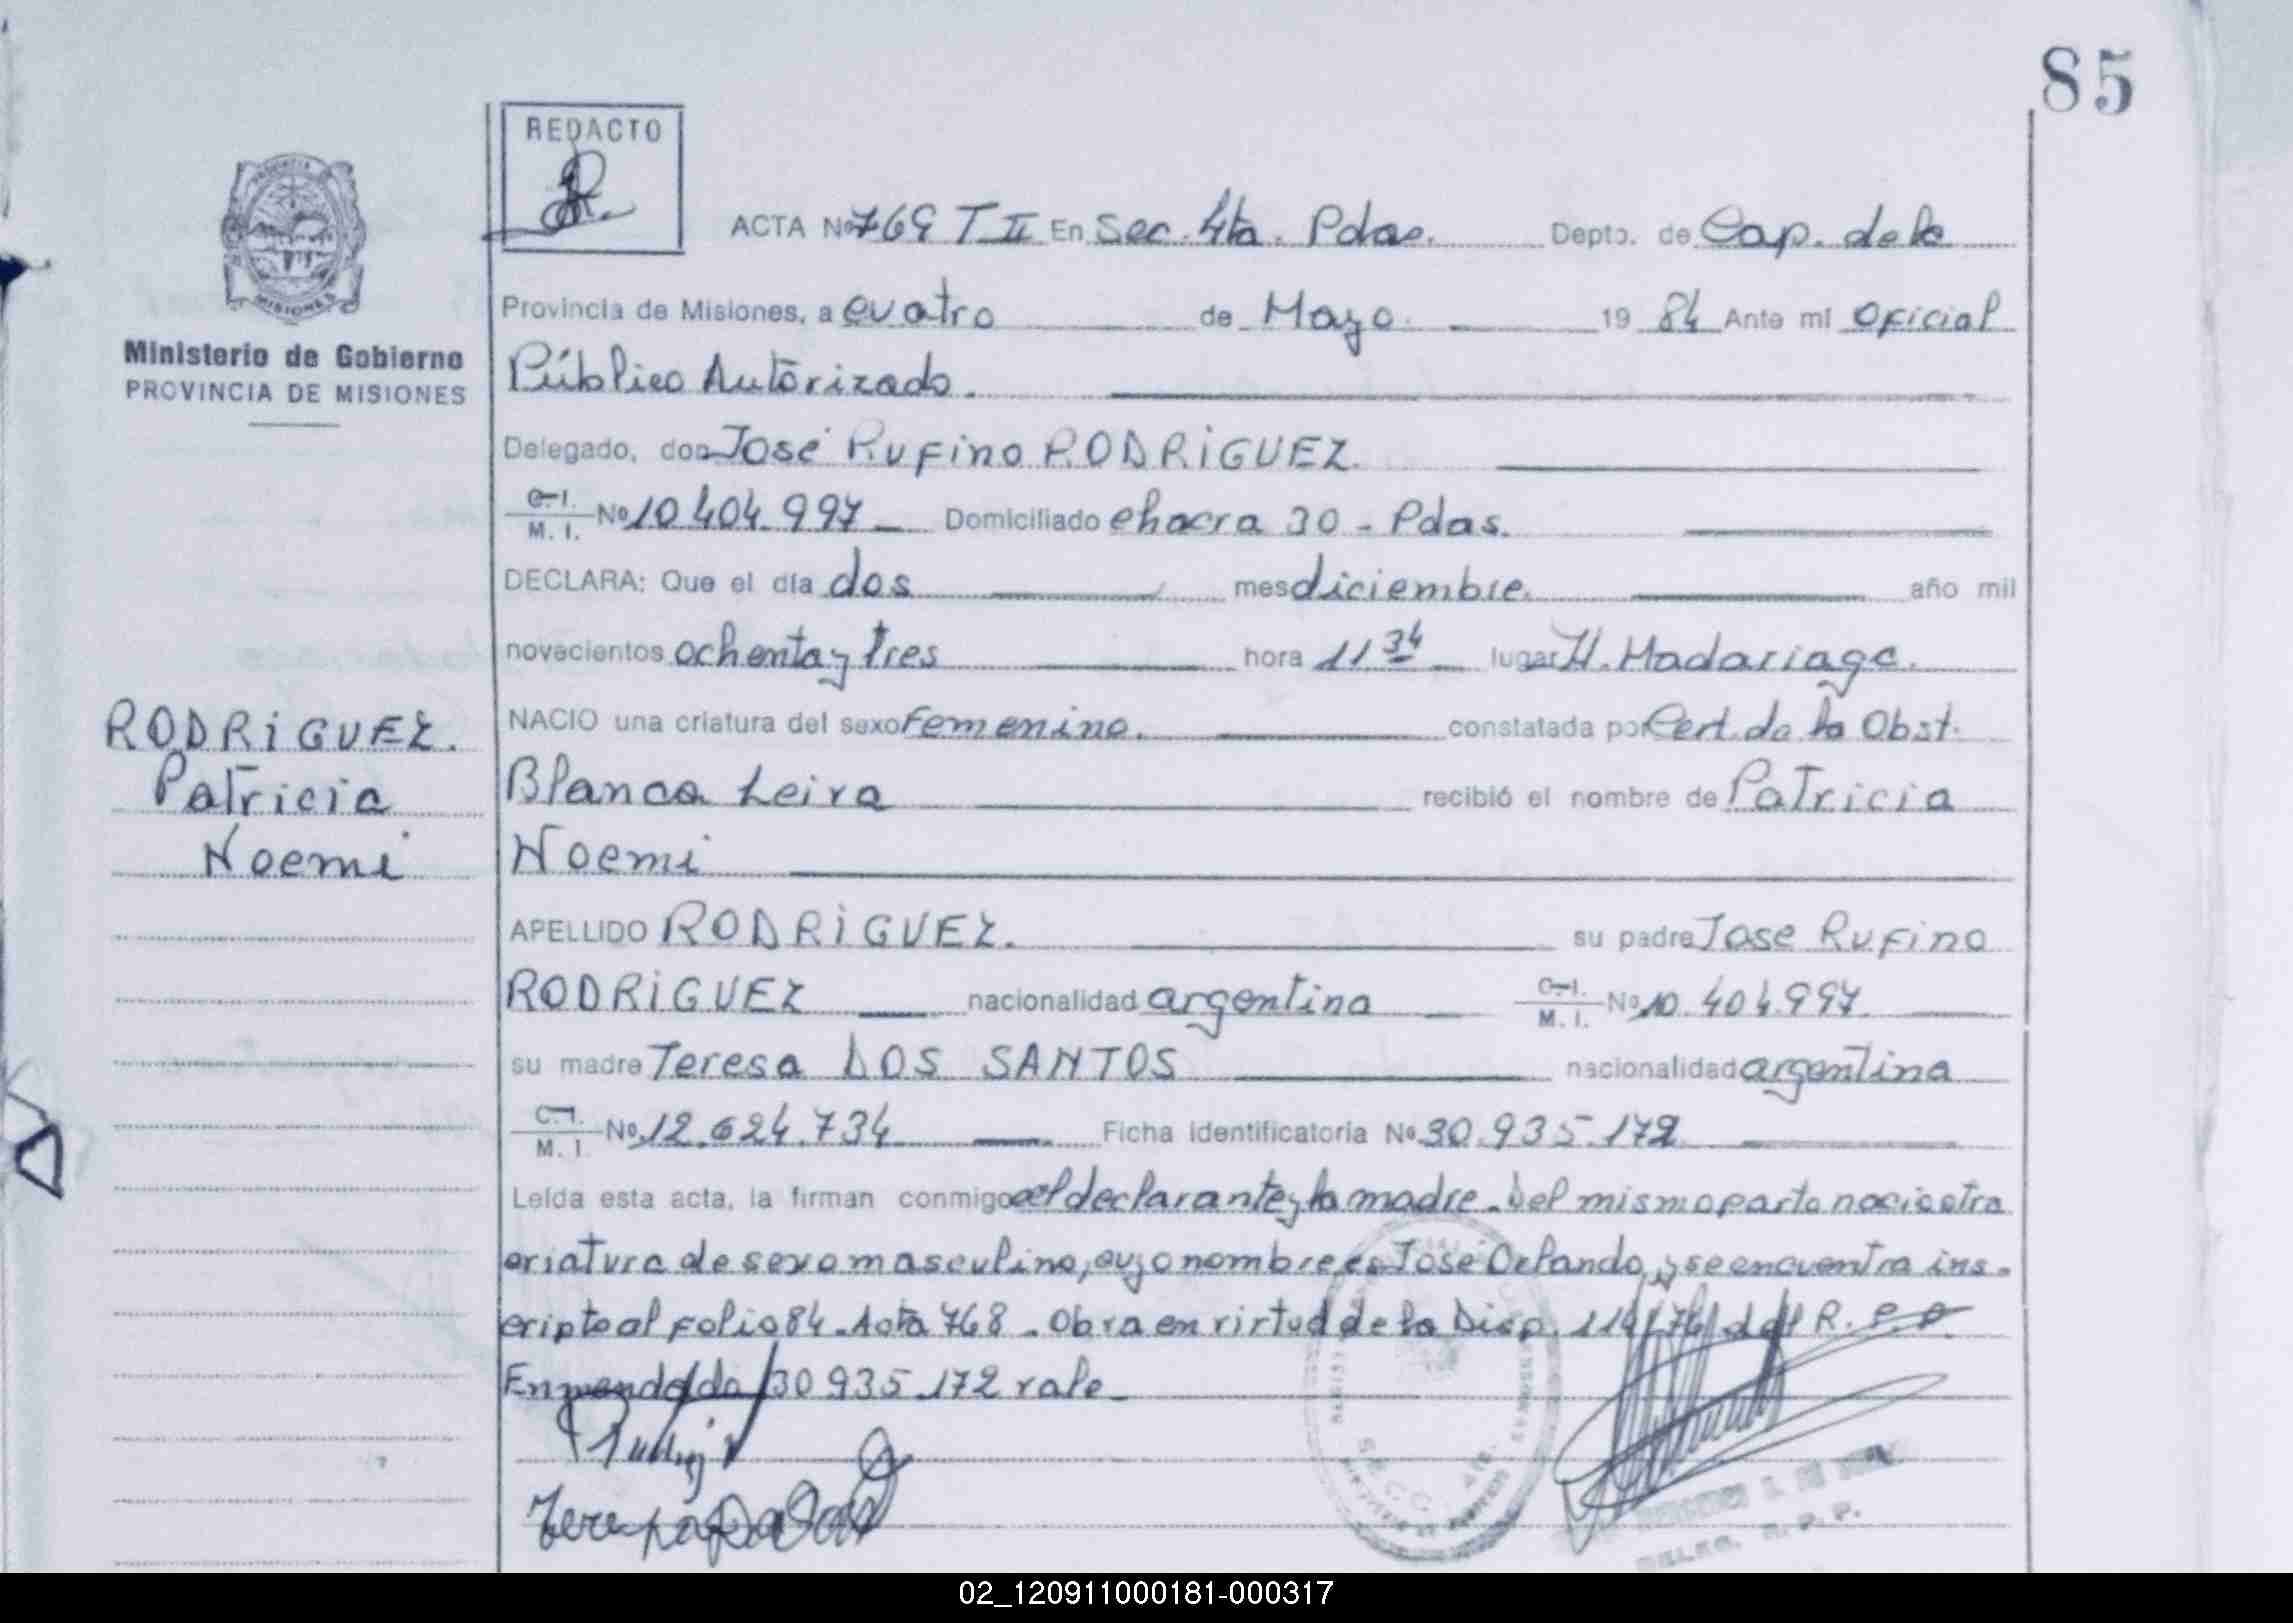 85
REDACTO
ACTA Nº 769 T II En Sec. 4ta. Pdas. Depto. de Cap. de la
Provincia de Misiones, a cuatro de Mayo. 19 84 Ante mi Oficial
Ministerio de Gobierno
PROVINCIA DE MISIONES
Público Autorizado.
Delegado, don José Rufino RODRIGUEZ.
C. I.
M. I. Nº 10 404.997 Domiciliado chacra 30 - Pdas.
DECLARA: Que el día dos mes diciembre. año mil
novecientos ochenta y tres hora 11 34 lugar H. Madariaga.
RODRIGUEZ.
Patricia
Noemi
NACIO una criatura del sexo Femenino. constatada por Cert. de la Obst.
Blanca Leiva recibió el nombre de Patricia
Noemi
APELLIDO RODRIGUEZ. su padre Jose Rufino
RODRIGUEZ nacionalidad argentina C. I.
M. I. Nº 10.404.997
su madre Teresa DOS SANTOS nacionalidad argentina
C. I.
M. I. Nº 12.624.734 Ficha identificatoria Nº 30.935.172
Leída esta acta, la firman conmigo el declarante y la madre. Del mismo parto nacio otra
criatura de sexo masculino, cuyo nombre es José Orlando, y se encuentra ins-
cripto al folio 84. Acta 768. Obra en virtud de la Disp. 114/76 del R. P. P.
Enmendado 30 935.172 vale.
MISIONES
SECC. 4TA.
DELEG. R. P. P.
02_120911000181-000317